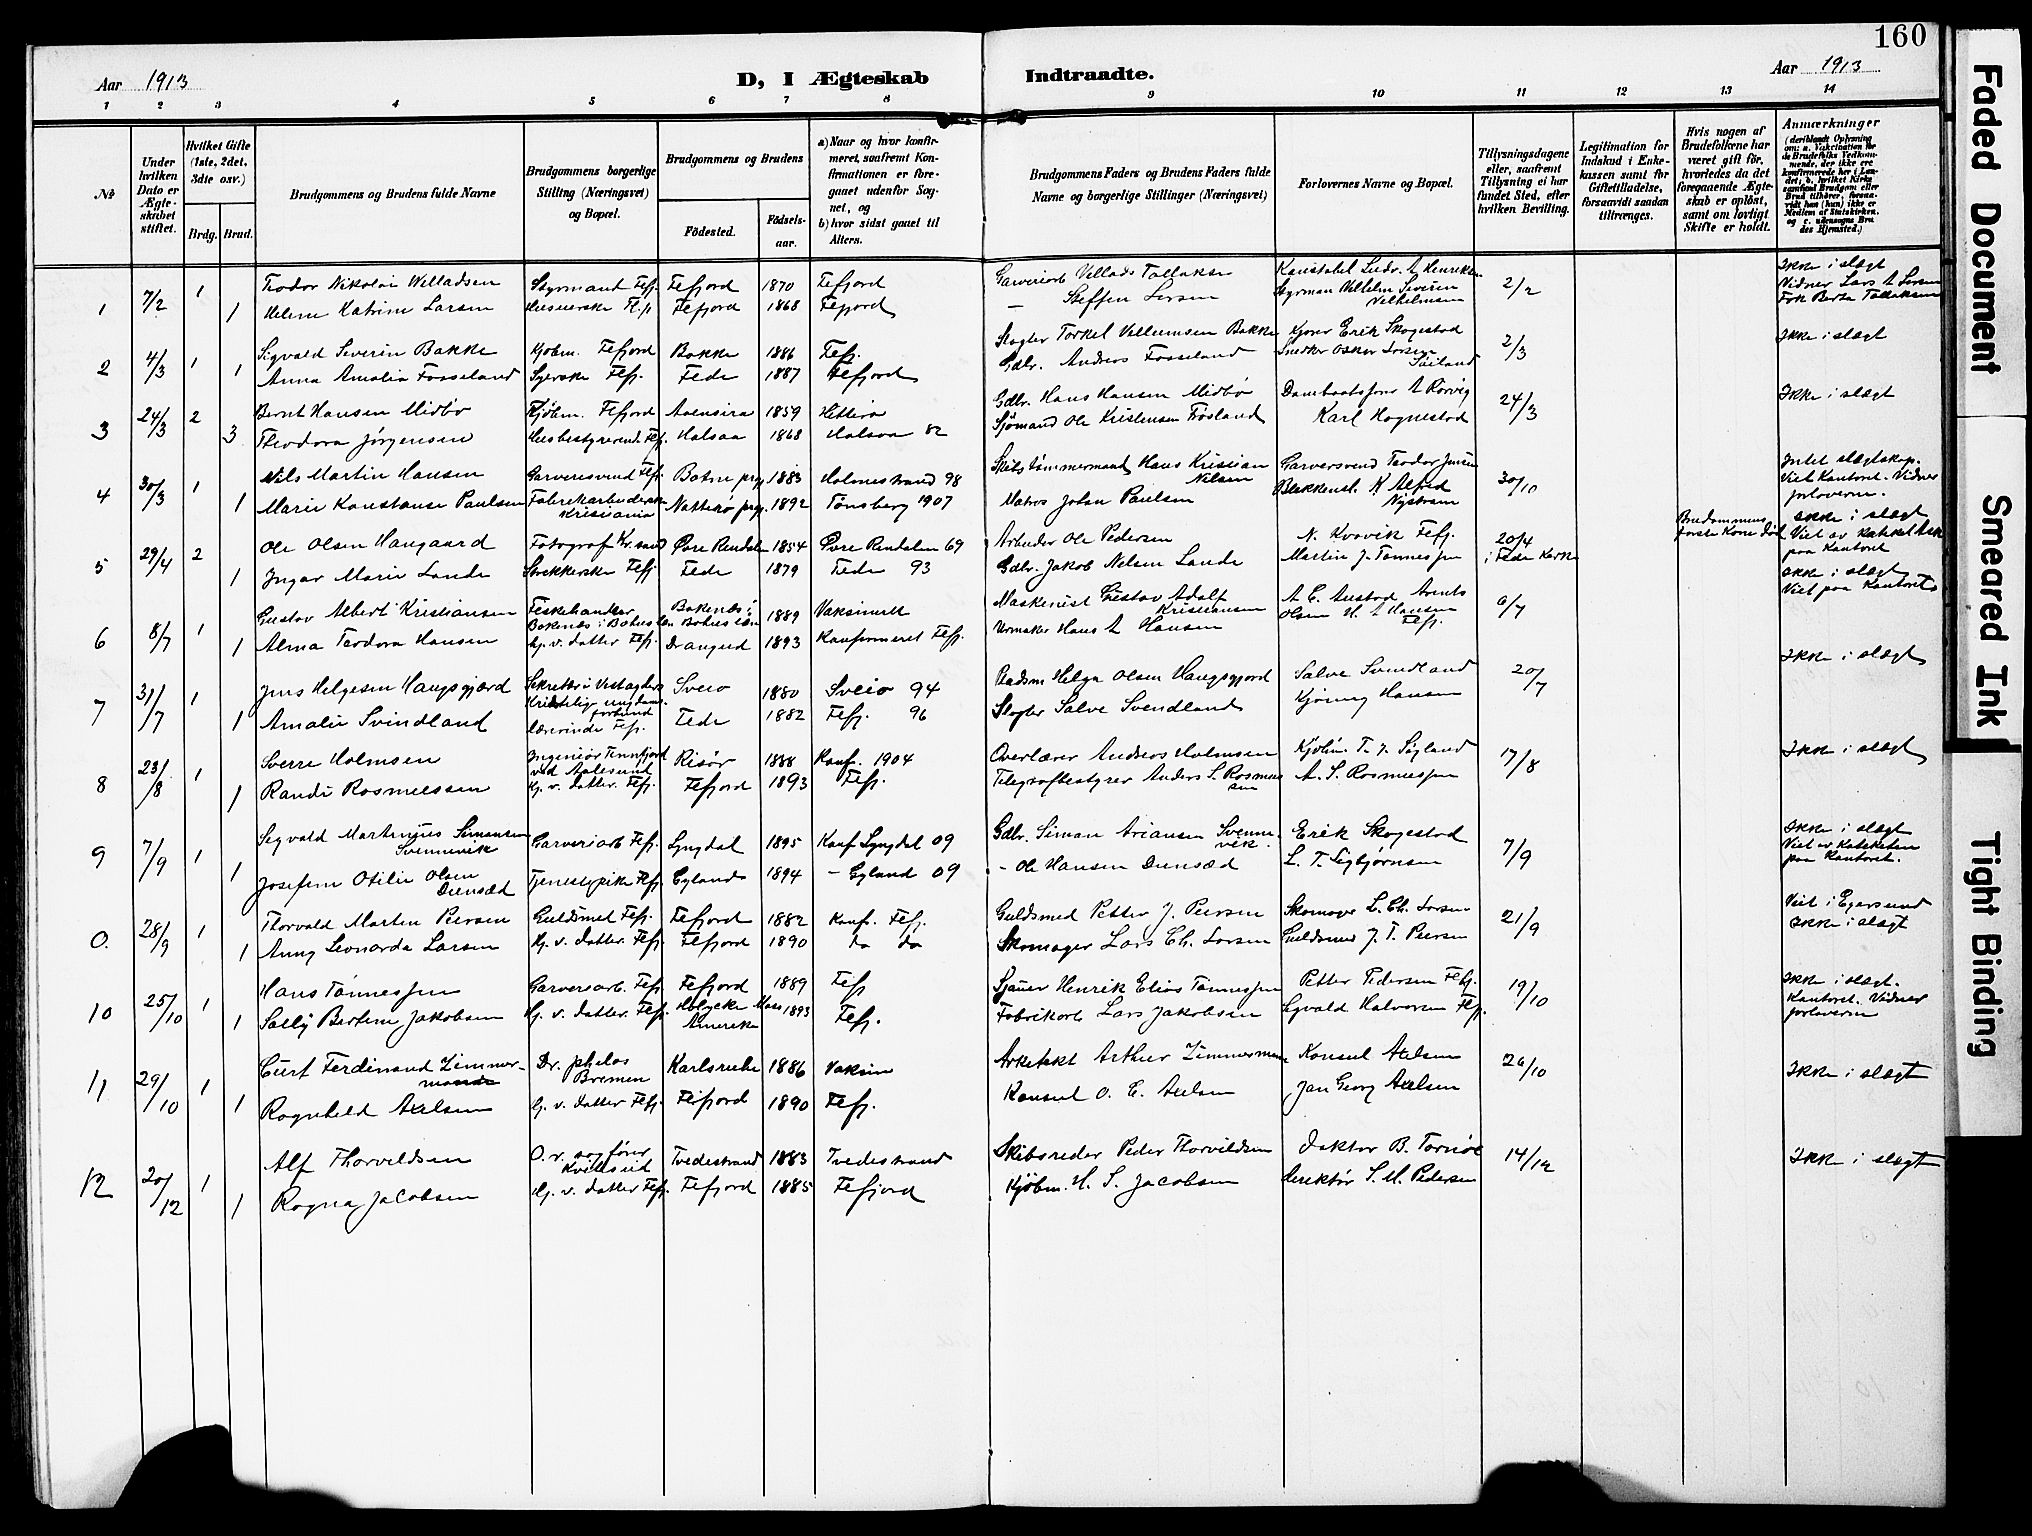 160
Aar 1913
D, I Ægteskab Indtraadte.
Aar 1913
1 2 3 4 5 6 7 8 9 10 11 12 13 14
№
Under hvilken Dato er Ægteskabet stiftet.
Hvilket Gifte (1ste, 2det, 3dte osv.)
Brdg. Brud.
Brudgommens og Brudens fulde Navne
Brudgommens borgerlige Stilling (Næringsvei) og Bopæl.
Brudgommens og Brudens
Födested. Födselsaar.
a) Naar og hvor konfirmeret, saafremt Konfirmationen er foregaaet udenfor Sognet, og
b) hvor sidst gaaet til Alters.
Brudgommens Faders og Brudens Faders fulde Navne og borgerlige Stillinger (Næringsvei)
Forlovernes Navne og Bopæl.
Tillysningsdagene eller, saafremt Tillysning ei har fundet Sted, efter hvilken Bevilling.
Legitimation for Indskud i Enkekassen samt for Giftetilladelse, forsaavidt saadan tiltrænges.
Hvis nogen af Brudefolkene har været gift før, hvorledes da det foregaaende Ægteskab er opløst, samt om lovligt Skifte er holdt.
Anmærkninger
1 7/2 1 Teodor Nikolai Willadsen Styrmand Fefj. Fefjord 1870 Fefjord Garveriarb Vellads Tallaksen 2/2 Ikke i slægt
1 Helene Katrine Larsen Fefjord 1868 Fefjord — Steffen Larsen Styrman Vilhelm Severin Vilhelmsen Vidner Lars A Larsen
2 4/3 1 Sigvald Severin Bakke Kjøbm. Fefjord Bakke 1886 Fefj. Slagter Torkel Vellumsen Bakke Erik Skogestad 2/3 Ikke i slægt
1 Anna Amalia Fosseland Syerske Fefj. Fede 1887 Fefjord Gdbr. Anders Fosseland Snedker Oskar Larsen
3 24/3 2 Bernt Hansen Midbø Kjøbm. Fefjord 1859 Hitterø Gdbr. Hans Hansen Midbø 24/3 Ikke i slægt
3 Theodora Jørgensen Husbestyrerinde Fefj. Halsaa 1868 Halsaa 82 Sjømand Ole Kristensen Fiosland Karl Hognestad
4 30/3 1 Nils Martin Hansen Garversvend Fefj. Botne prg. 1883 Holmestrand 98 Skibstømmermand Hans Kristian Nilsen Garversvend Teodor Jensen 30/10 Intet slægtskap.
1 Marie Konstanse Paulsen Fabrikarbeiderske Kristiania Nøtterø prg. 1892 Tønsberg 1907 Matros Johan Paulsen Blekkensl. K Alfred Nystrøm Viet Kantoret. Vidner forloverne.
5 29/4 2 Ole Olsen Haugaard Fotograf Kr.sand Øvre Rendalen 1854 Øvre Rendalen 69 Arbeider Ole Pedersen N. Kvavik Fefj. 20/4 i Fede Kirke Brudgommens første Kone død Ikke i slægt
1 Ingar Marie Lande Strekkerske Fefj. Fede 1879 Fede 93 Gdbr. Jakob Nilsen Lande Martin J. Tønnessen Viet av Kateket paa Kantoret
6 8/7 1 Gustav Albert Kristiansen Fiskehandler Bokenæs i Bohuslen Bokenæs i Bohuslen 1889 Vaksinert Maskinist Gustav Adolf Kristiansen A. C. Austad Arents 6/7 Ikke i slægt Viet paa Kantoret
1 Alma Teodora Hansen Hj. v. datter Fefj. Dranged 1893 Konfirmeret Fefj. Urmaker Hans A Hansen Olsen H. A Hansen Fefj.
7 31/7 1 Jens Helgesen Haugsgjærd Sekretær i Vestagders Kristelig ungdomsforbund Sveio 1880 Sveio 94 Gaadsm Helge Olsen Haugsgjerd Salve Svindland 20/7 Ikke i slægt
1 Amalie Svindland Lærerinde Fefj. Fede 1882 Fefj. 96 Slagter Salve Svendland Kjønig Hansen
8 23/8 1 Sverre Holmsen Ingeniør Tennfjord ved Aalesund Risør 1888 Konf. 1904 Overlærer Andreas Holmsen Kjøbm. T. J. Søyland 17/8 Ikke i slægt
1 Randi Rasmussen Hj. v. datter. Fefj. Fefjord 1893 Fefj. Telegrafbestyrer Anders S. Rasmussen A. S. Rasmussen
9 7/9 1 Sigvald Martinius Simonsen Svennevik Garveriarb Fefj. Lyngdal 1895 Konf Lyngdal 09 Gdbr. Simon Ariansen Svennevik. Erik Skogestad 7/9 Ikke i slægt Viet av Kateketen paa Kantoret.
1 Josefine Otilie Olsen Duesæd Tjenestepike Fefj Gyland 1894 – Gyland 09 – Ole Hansen Duesæd L. T. Sigbjørnsen
0. 28/9 1 Thorvald Martin Peersen Guldsmed Fefj. Fefjord 1882 Konf. Fefj. Guldsmed Petter J. Peersen Skomager L. Ch. Larsen 21/9 Viet i Egersund
1 Anny Leonarda Larsen Hj. v. datter. Fefj. Fefjord 1890 do do Skomager Lars Ch. Larsen Guldsmed J. T. Peersen Ikke i slægt
10 25/10 1 Hans Tønnessen Garveriarb. Fefj. Fefjord 1889 Fefj Sjauer Henrik Elias Tønnessen Petter Pedersen Fefj. 19/10 Ikke i slægt.
1 Sally Bertine Jakobsen Hj. v. datter. Fefj. Holyoke Mass Amerika 1893 Fefj. Fabrikarb Lars Jakobsen Sigvald Halvorsen Fefj. Kantoret. Vidner forloverne
11 29/10 1 Curt Ferdinand Zimmermann Dr. philos Bremen Karlsruhe 1886 Vaksin Arkitekt Arthur Zimmermann Konsul Axelsen 26/10 Ikke i slægt
1 Ragnhild Axelsen Hj. v. datter Fefj. Fefjord 1890 Fefj. Konsul O. E. Axelsen Jan Georg Axelsen
12 20/12 1 Alf Thorvildsen O.r. sagfører Kviteseid Tvedestrand 1883 Tvedestrand Skibsreder Peder Thorvildsen Doktor B. Tornøe 14/12 Ikke i slægt
1 Ragna Jacobsen Hj. v. datter Fefj. Fefjord 1885 Fefjord Kjøbm. H. S. Jacobsen Direktør S. M. Pedersen
Faded Document
Smeared Ink
Tight Binding